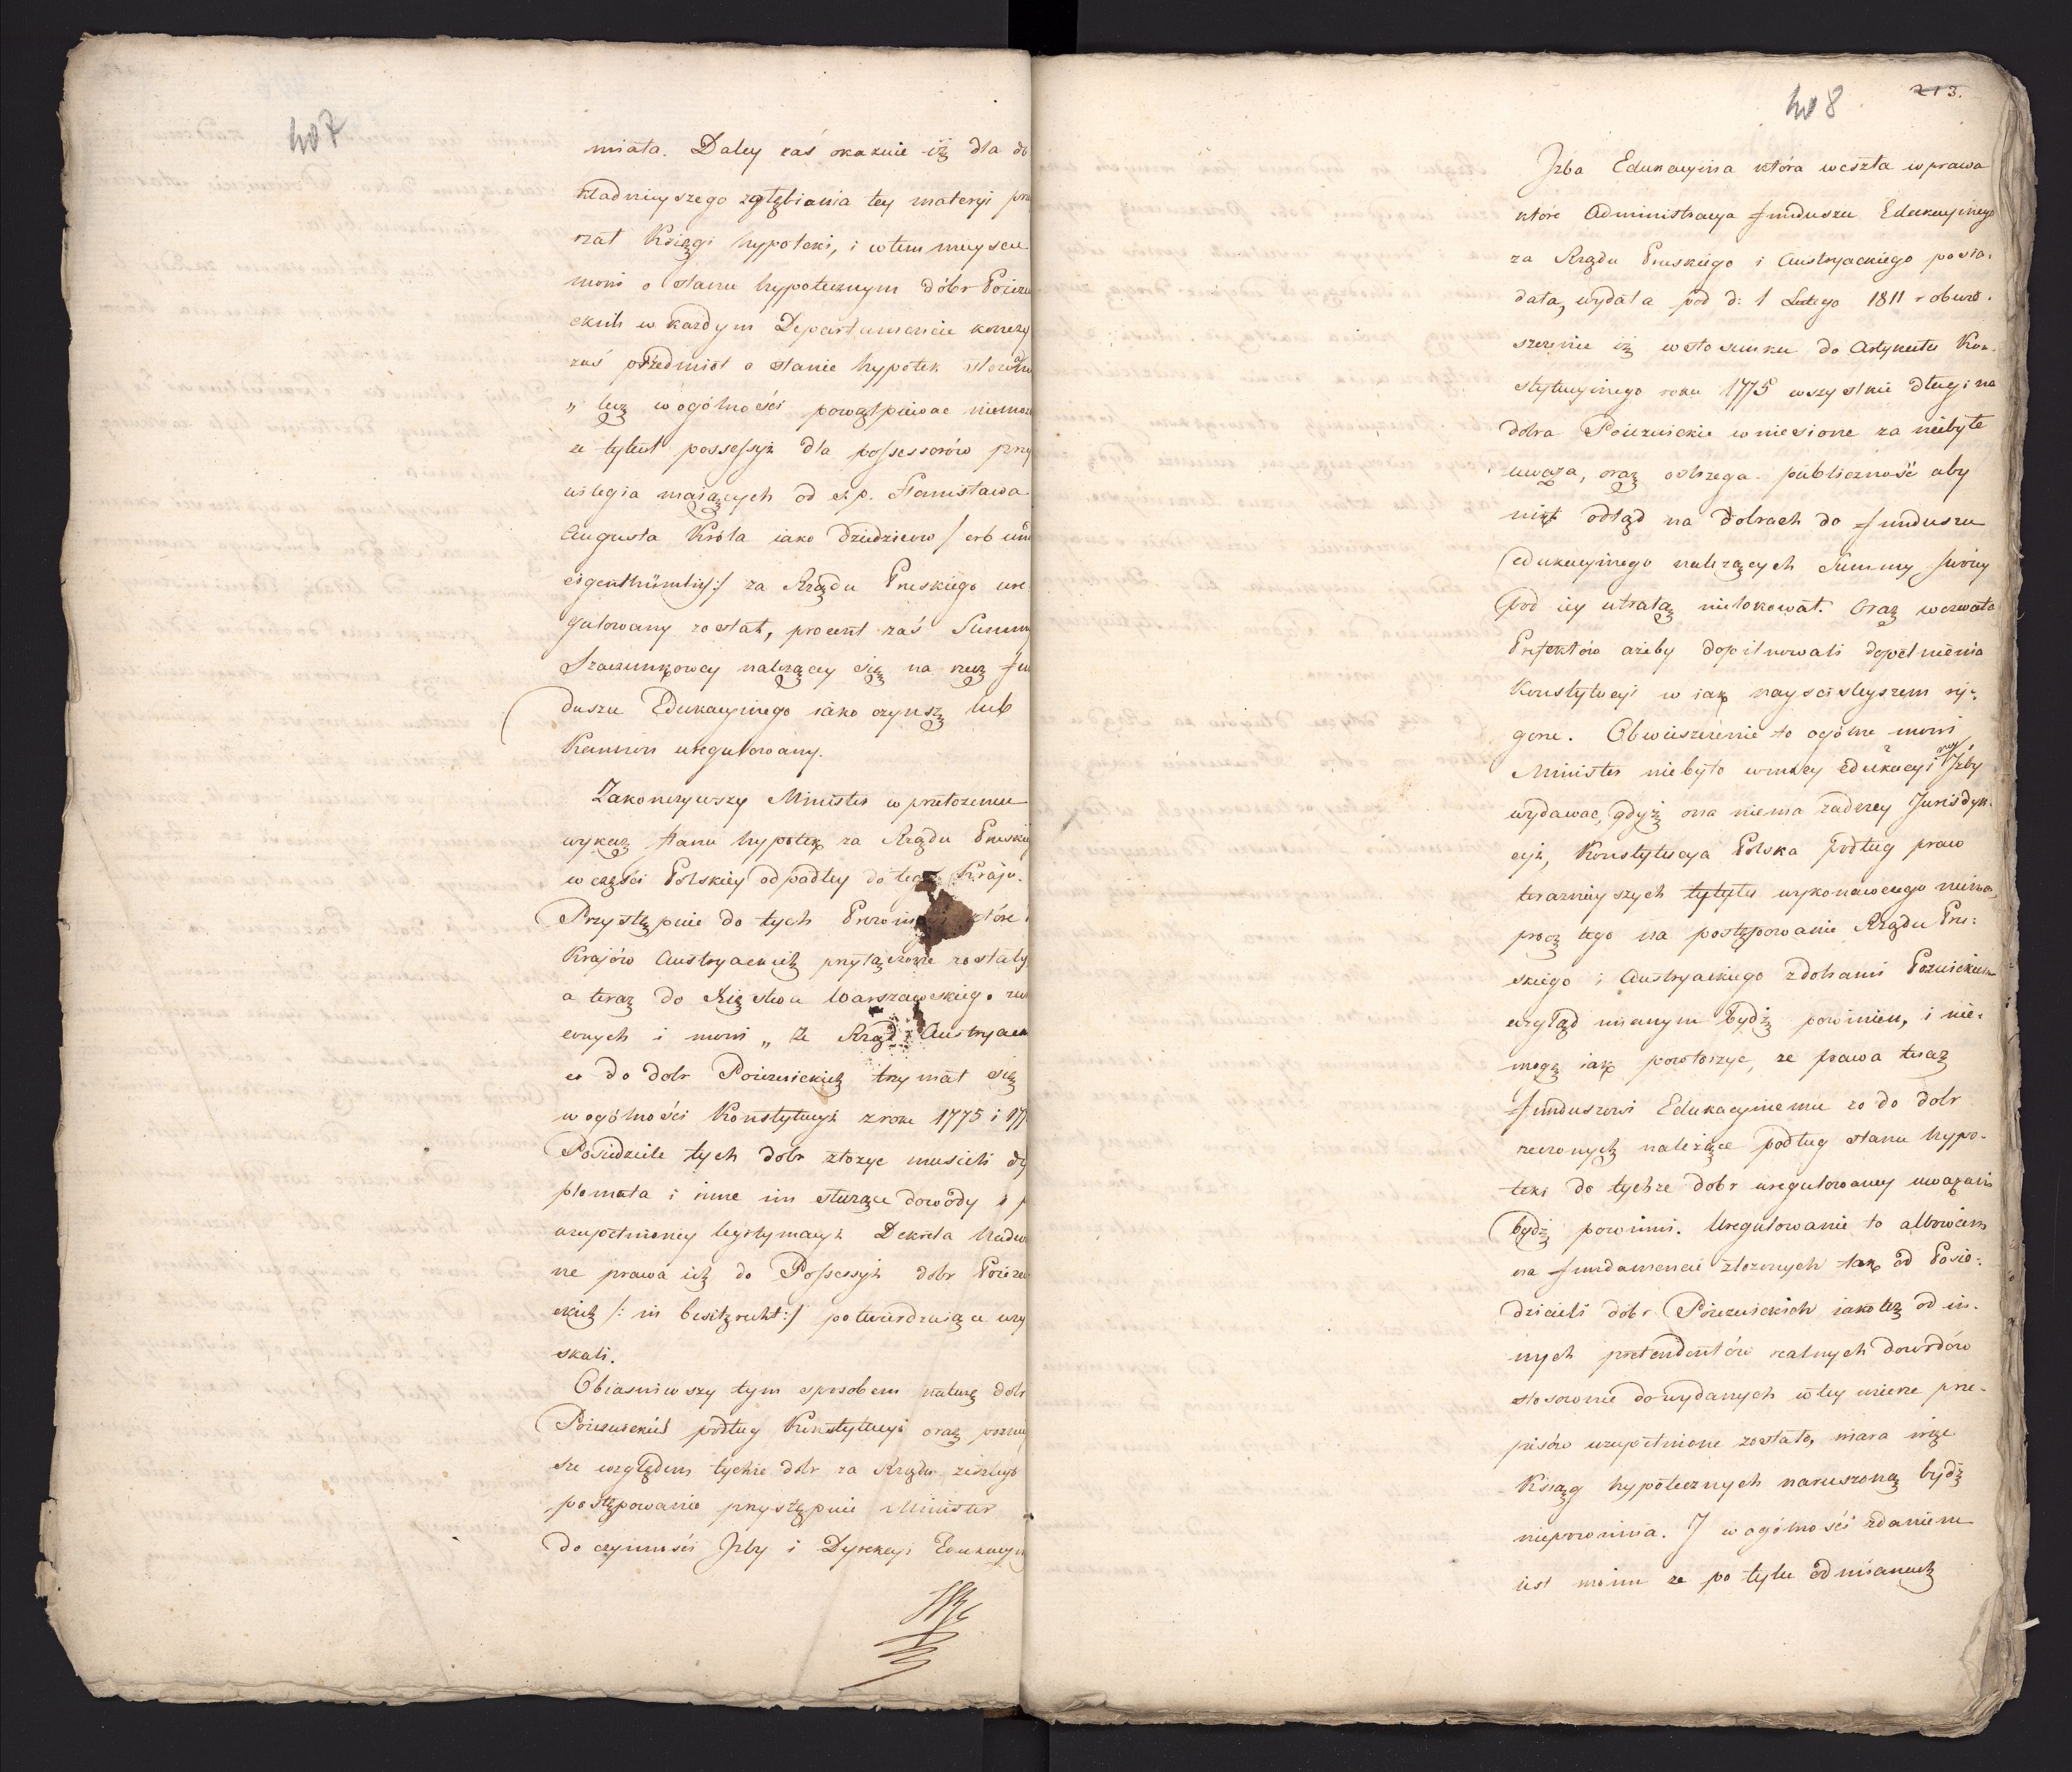 407
miała. Daley zaś okazuie iż dla do
kładnieyszego zgłębiania tey materyi prze
rzał Księgi hypoteki, i w tem mieyscu
mowi o stanie hypotecznym dóbr Poiezu
ckich w każdym Departamencie kończy
zaś przedmiot o stanie hypotek słowami
„ lecz w ogólności powątpiewac niemożn
ze tytuł possessyi dla possessorów przy
wilegia maiących od ś. p. Stanisława
Augusta Króla iako dziedziców /: erb und
eigenthümlich :/ za Rządu Pruskiego ure
gulowany został, procent zaś Summ
Szacunkowey należącey się na rzecz Fun
duszu Edukacyinego iako czynsz lub
Kannon uregulowany.
Zakonczywszy Minister w przełożeniu
wykaz stanu hypotek za Rządu Pruskie
w części Polskiey odpadłey do tego Kraju.
Przystępuie do tych Prowincyi które
Kraiów Austryackich przyłączone zostały
a teraz do Xięstwa Warszawskiego zwr
conych i mowi „ Ze Rząd Austryack
co do dobr Poiezuickich trzymał się
w ogólności Konstytucyi z roku 1775 i 177
Posiedziciele tych dobr złożyc musieli dy
plomata i inne im służące dowody i p
uzupełnioney legitymacyi Dekreta Sądow
ne prawa ich do Possessyi dobr Poiezui
ckich /: in besitzrecht :/ potwierdzaiące uzy
skali.
Obiasniwszy tym sposobem naturę dobr
Poiezuickich podług Konstytucyi oraz poźniey
sze względem tychże dobr za Rządu zeszłego
postępowanie przystępuie Minister
do czynności Izby i Dyrekcyi Edukacyin
408
213.
Izba Edukacyina która weszła w prawa
które Administracya Funduszu Edukacyinego
za Rządu Pruskiego i Austryackiego posia-
dała, wydała pod d: 1 Lutego 1811 r obwie-
szczenie iż w stosunku do Artykułu Kon-
stytucyinego roku 1775 wszystkie długi na
dobra Poiezuickie wniesione za niebyłe
uważa, oraz ostrzega publiczność aby
nikt odtąd na dobrach do Funduszu
edukacyinego należących Summy swoiey
pod iey utratą nielokował. Oraz wezwała
Prefektów ażeby dopilnowali dopełnienia
Konstytucyi w iak nayscisleyszem ry-
gorze. Obwieszczenie to ogólne mowi
Minister niebyło w mocy Edukacyi ney Izby
wydawac, gdyż ona niema żadney Jurisdyk-
cyi, Konstytucya Polska podług praw
teraznieyszych tytułu wykonawczego niema,
procz tego na postępowanie Rządu Pru-
skiego i Austryackiego z dobrami Poiezuickiem
wzgląd mianym bydź powinien, i nie-
mogę iak powtorzyc, ze prawa teraz
Funduszowi Edukacyinemu co do dobr
rzeczonych należące podług stanu hypo-
teki do tychże dobr uregulowaney uważane
bydź powinni. Uregulowanie to albowiem
na fundamencie złożonych tak od Posie-
dzicieli dobr Poiezuickich iako też od in-
nych pretendentów realnych dowodów
stosownie do wydanych w tey mierze prze-
pisów uzupełnione zostało, wiara więc
Ksiąg hypotecznych naruszoną bydź
niepowinna. I w ogólności zdaniem
iest moim ze po tylu odmianach